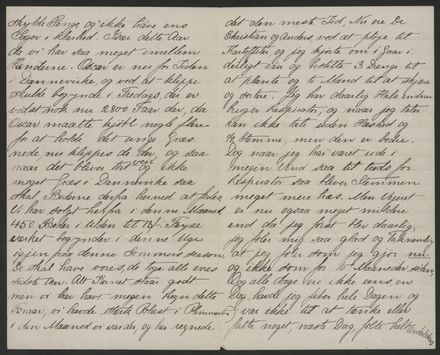 skylde Penge og ikke have ens
Sager i Stand. Især dette Aar
da vi har saa meget imellem
Hænderne. Oscar er nu for Tiden
i Dannevirke og ved at klippe
skulde begynde i Tredags, der er
vidst nok nu 2800 Faar der, da
Oscar maatte kjøbt nogle flere
for at holde det unge Græs
nede nu klippes de her, og saa
naar det bliver tørt over ikke
meget Græs i Dannevirke saa
skal Bukkene derfra herned at
Vi har solgt herfra i denne Maaned
450 Bukker i Ulden til 13/-. Fryse
værket begynder i denne Uge
igjen fra denne Sommers season
De skal have vores, de tage alle vores
sidste Aar. Alt Kornet staar godt
men vi har havt megen Regn dette
Foraar, vi havde stærk Blæst i
i den Maaned vi var der, og har regnede
det den meste Tid. Nu ere De
Christian og Anders ved at pløje til
Kartofler og jeg kjørte om i Gaar i
deiligt Vejr og hentede 3 Drenge til
at plante og to Mænd til at skjære
og sortere. Jeg har daarlig Hals endnu
bruger Respirator, og naar jeg taler
kan ikke tale uden Hæshed og
½ Stemme, men den er bedre.
Dog naar jeg har været ude i
megen Vind saa til trods for
Respirator saa bliver Stemmen
meget mere hæs. Men Vejret
er nu ogsaa meget mildere
end da jeg først blev daarlig,
jeg føler mig saa glad og taknemlig
at jeg føler som jeg gjør nu
og ikke som for 6 Maaneder siden,
Dog alle Dage ere ikke ens, en
Dag havde jeg feber hele Dagen og
var ikke til at tænke eller
føle noget, næste Dag, følte helt anderledes